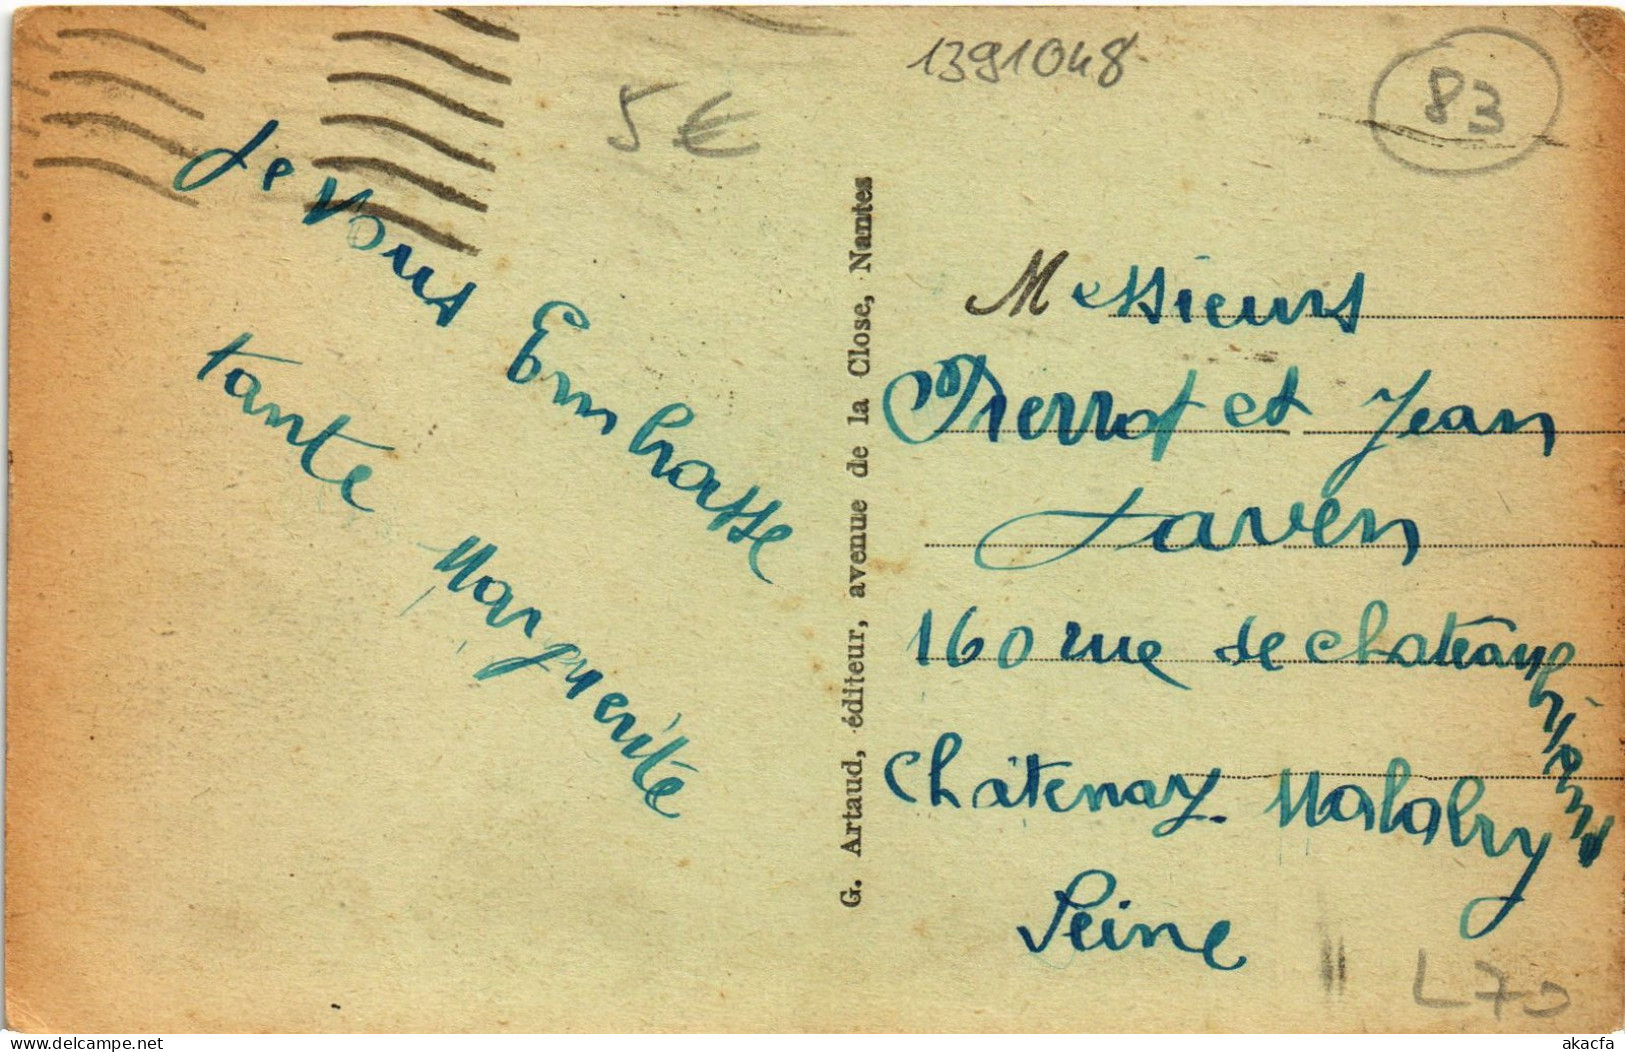 1391048
83
5 €
Je vous Embrasse
tante Marguerite
G. Artaud, éditeur, avenue de la Close, Nantes
Messieurs
Pierrot et Jean
Javen
160 rue de chateaubriand
Châtenay. Malabry
Seine
L 70
akacfa